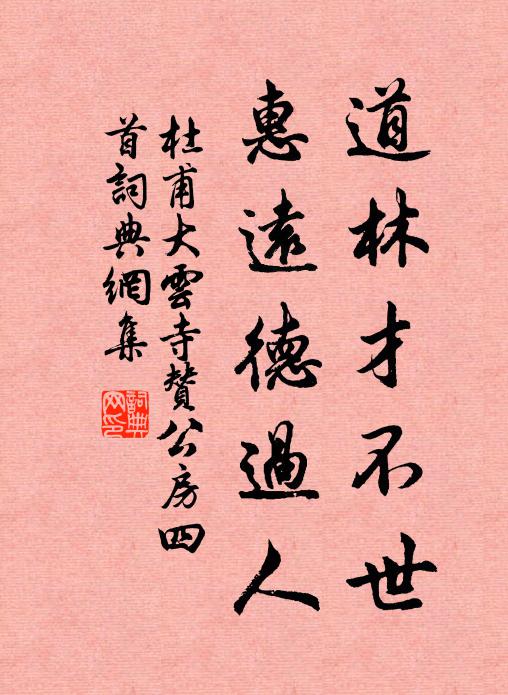 道林才不世
惠遠德過人
杜甫大雲寺贊公房四
首詞典網集
詞典网印